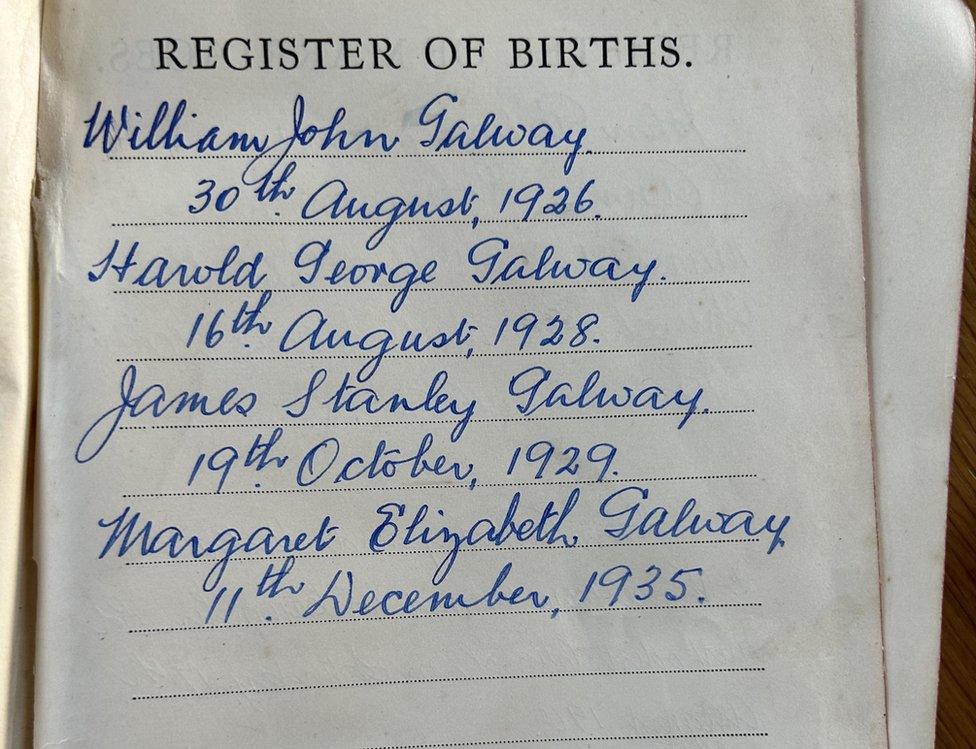 REGISTER OF BIRTHS.
William John Galway.
30th August, 1926.
Harold George Galway.
16th August, 1928.
James Stanley Galway.
19th October, 1929.
Margaret Elizabeth Galway
11th December, 1935.